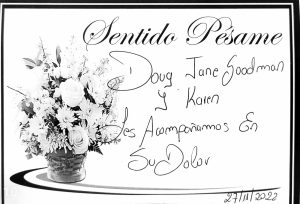 Sentido Pésame
Doug, Jane Goodman
y Karen
Les Acompañamos En
Su Dolor
27/11/2022